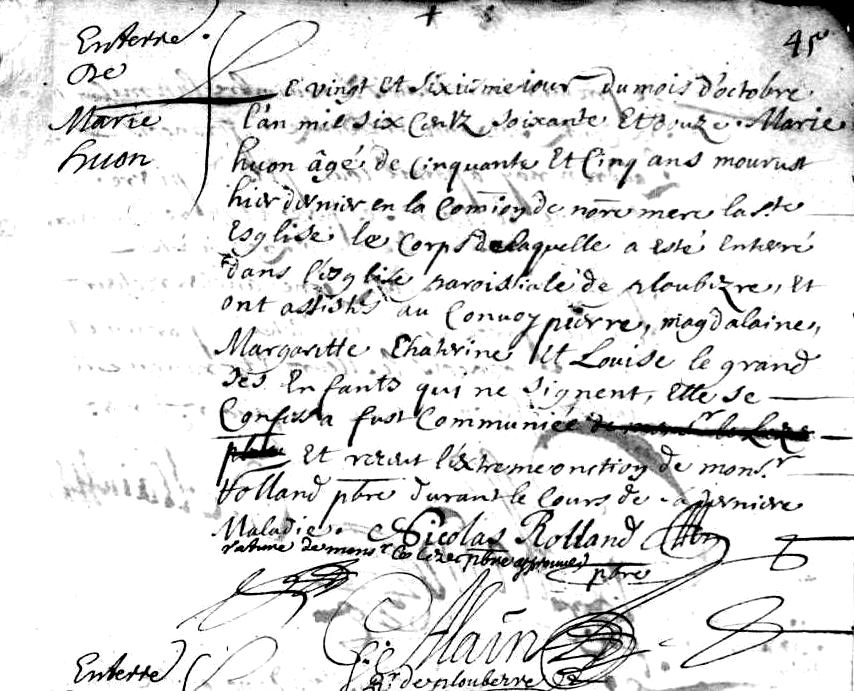 45
Enterre
de
Marie
huon
Le vingt et sixiisme iour du mois d'octobre
l'an mil six centz soixante et douze. Marie
huon âgé de cinquante et cinq ans mourust
hier dernier en la Comion de nore mere la ste
Esglise le corps de laquelle a esté enterré
dans l'esglise paroissiale de ploubezre, et
ont assistés au Convoy pierre, magdalaine,
Margaritte Chaterine et Louise le grand
ses Enfants qui ne signent, Elle se
Confessa fust Communiée
et receut l'extreme onction de monsr
Rolland pbre durant le cours de sa derniere
Maladie. Nicolas Rolland
rature de monsr pbre approuvée
pbre
Alain
Rr de ploubezre
Enterre